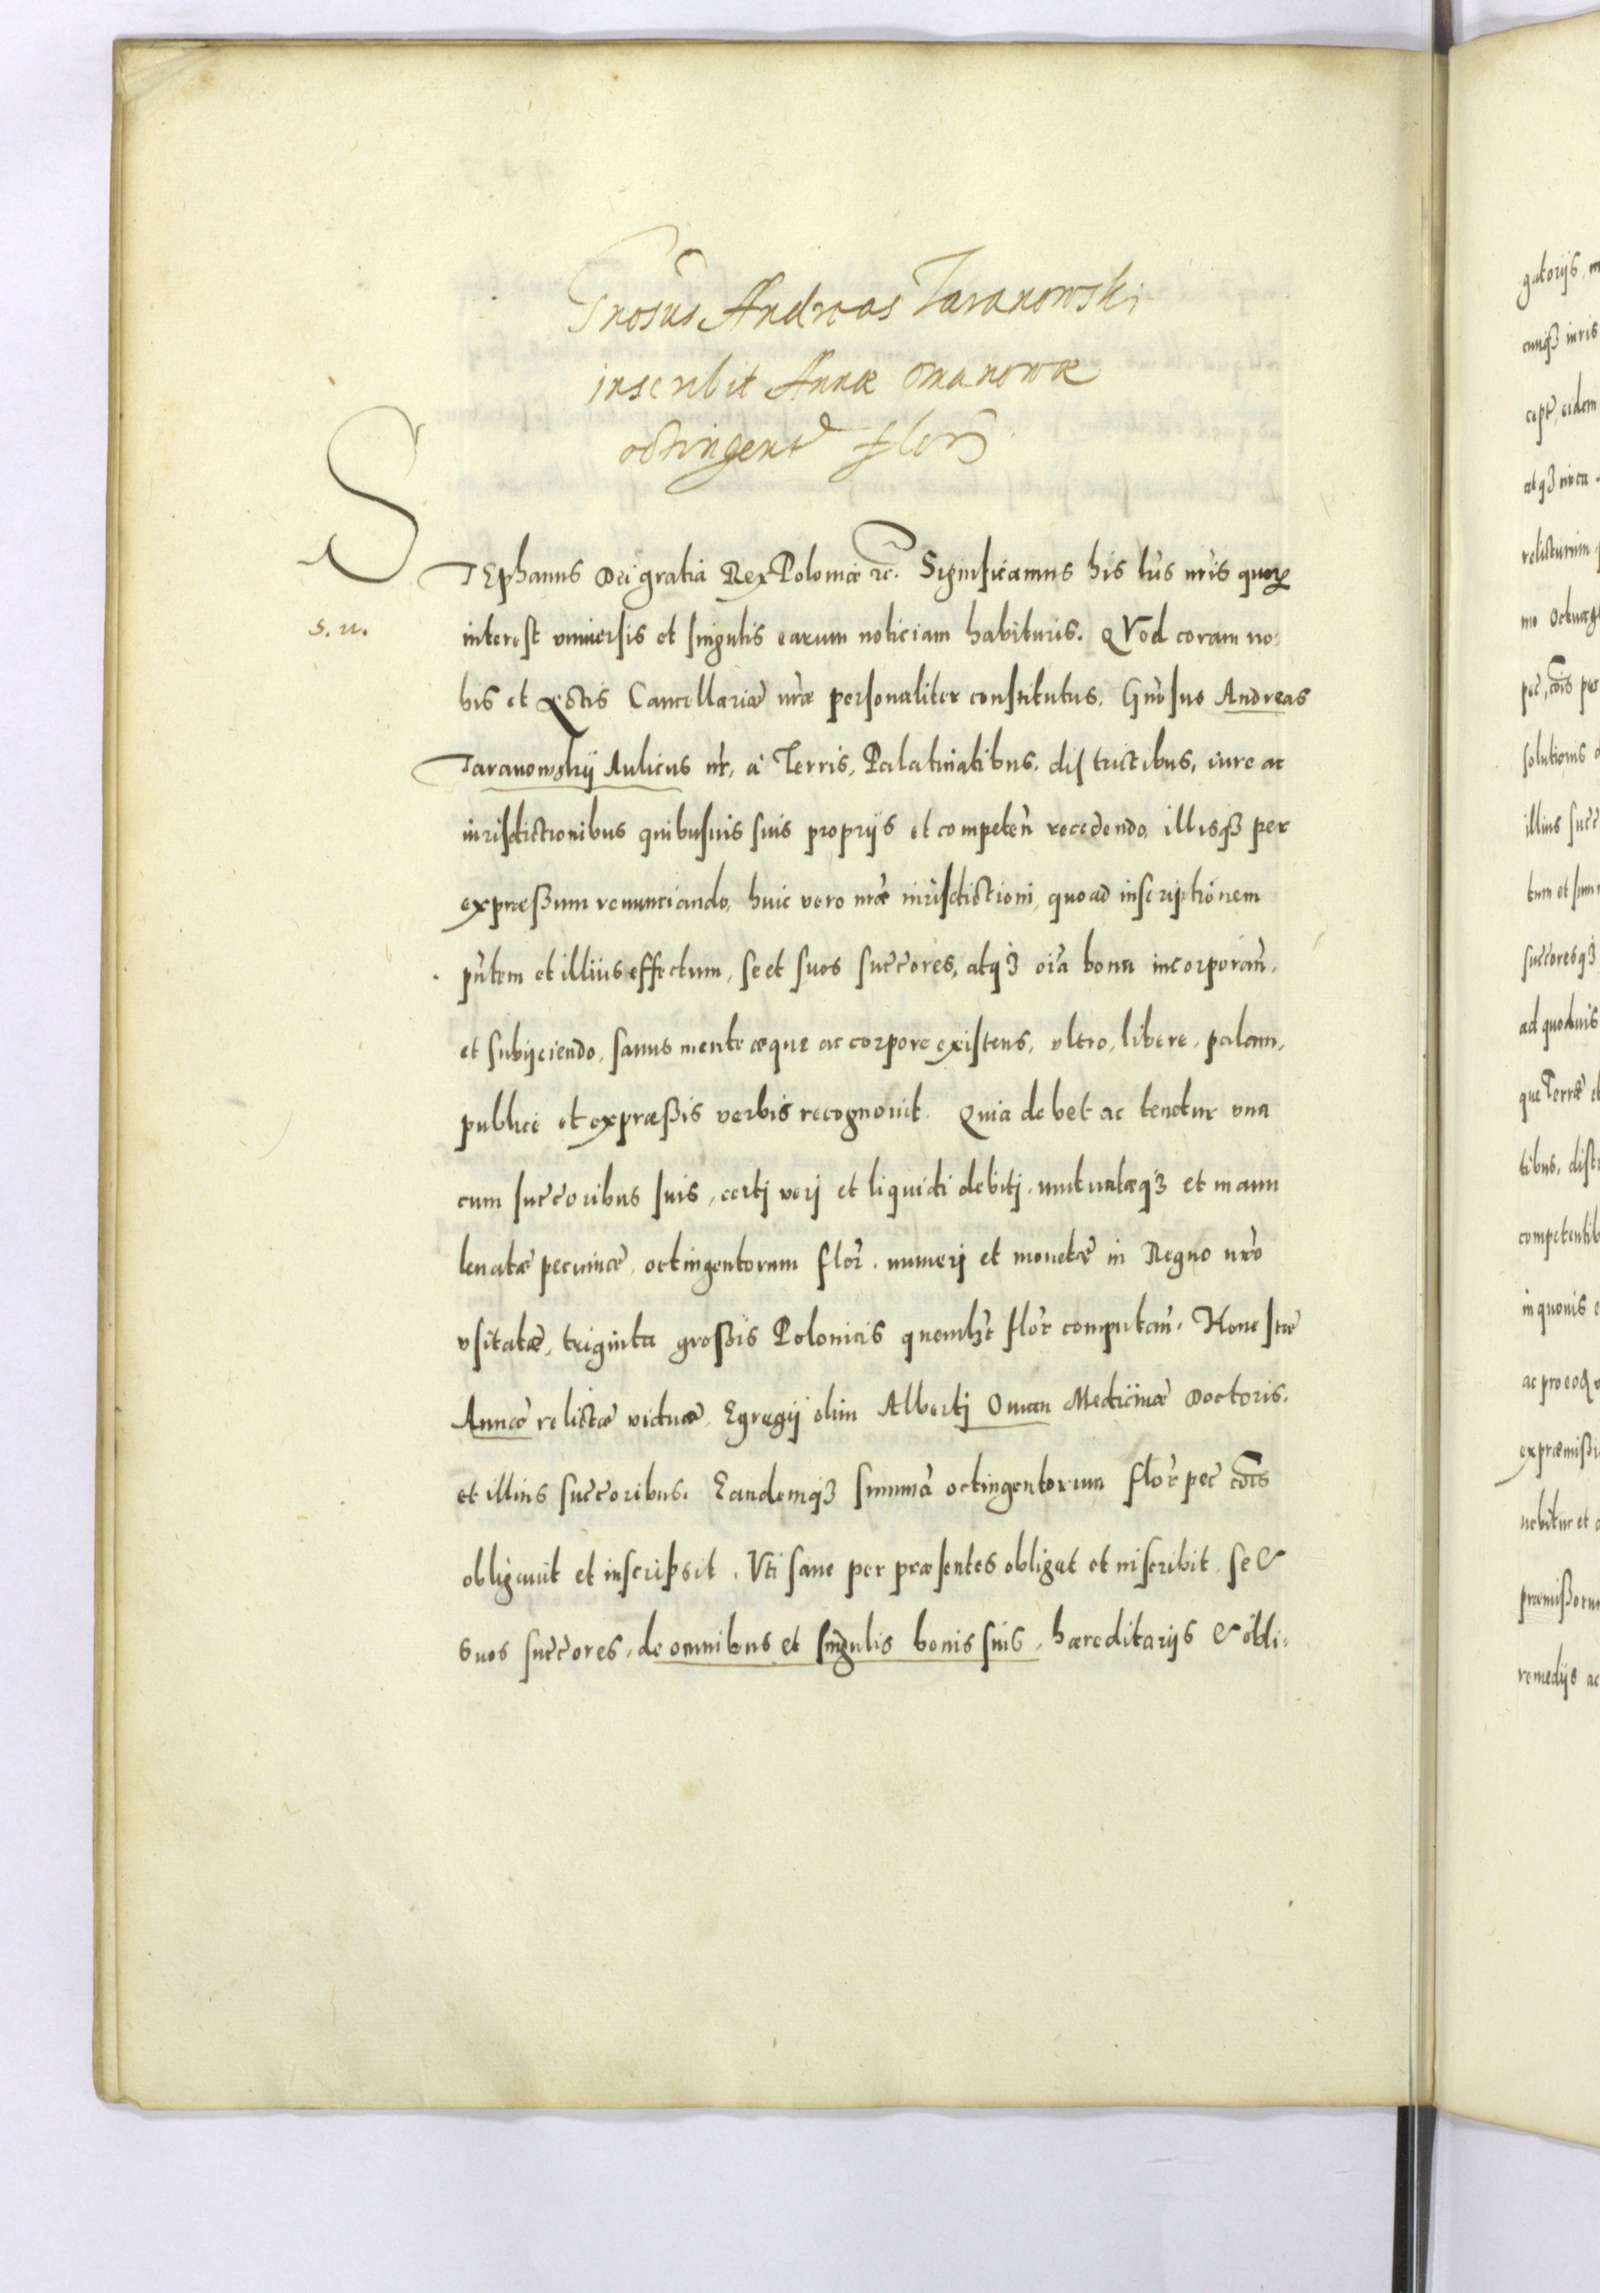 Gnosus Andreas Taranowski
inscribit Annæ Omanowæ
octingent flor
STEphanus Dei gratia Rex Poloniæ etc. Significamus his lris nris quorꝫ
s. n.
interest vniuersis et singulis earum noticiam habituris. QVod coram no:
bis et Actis Cancellariæ nræ personaliter constitutus, Gnosus Andreas
Taranowskij Aulicus nr, à Terris, Palatinatibus, districtibus, iure ac
iurisdictionibus quibusuis suis proprijs et competen recedendo, illisqꝫ per
expræßum renunciando, huic vero nræ iurisdictioni, quoad inscriptionem
pntem et illius effectum, se et suos succores, atqꝫ oia bona incorporan,
et subijciendo, sanus mente æque ac corpore existens, vltro, libere, palam,
publice et expræßis verbis recognouit. Quia debet ac tenetur vna
cum succoribus suis, certj verj et liquidi debitj, mutuatæqꝫ et manu
leuatæ pecuniæ, octingentorum flor. numerj et monetæ in Regno nro
vsitatæ, triginta großis Polonicis quemlꝫt flor computan. Honestæ
Annæ relictæ viduæ, Egregij olim Albertj Oman Medicinæ Doctoris,
et illius succoribus. Eandemqꝫ summā octingentorum flor pec cois
obligauit et inscripsit. Vti sane per præsentes obligat et inscribit, se &
suos succores, de omnibus et singulis bonis suis, hæreditarijs & obli:
gatorijs
cunqꝫ iuris
cept, eidem
atqꝫ circa
pec, cois per
solutionis
illius succ
tum et sum
succoresqꝫ
ad quoduis
que Terræ et
tibus, distr
competentib
in quouis
ac pro eoq
expræmißi
præmißorum
remedijs ac